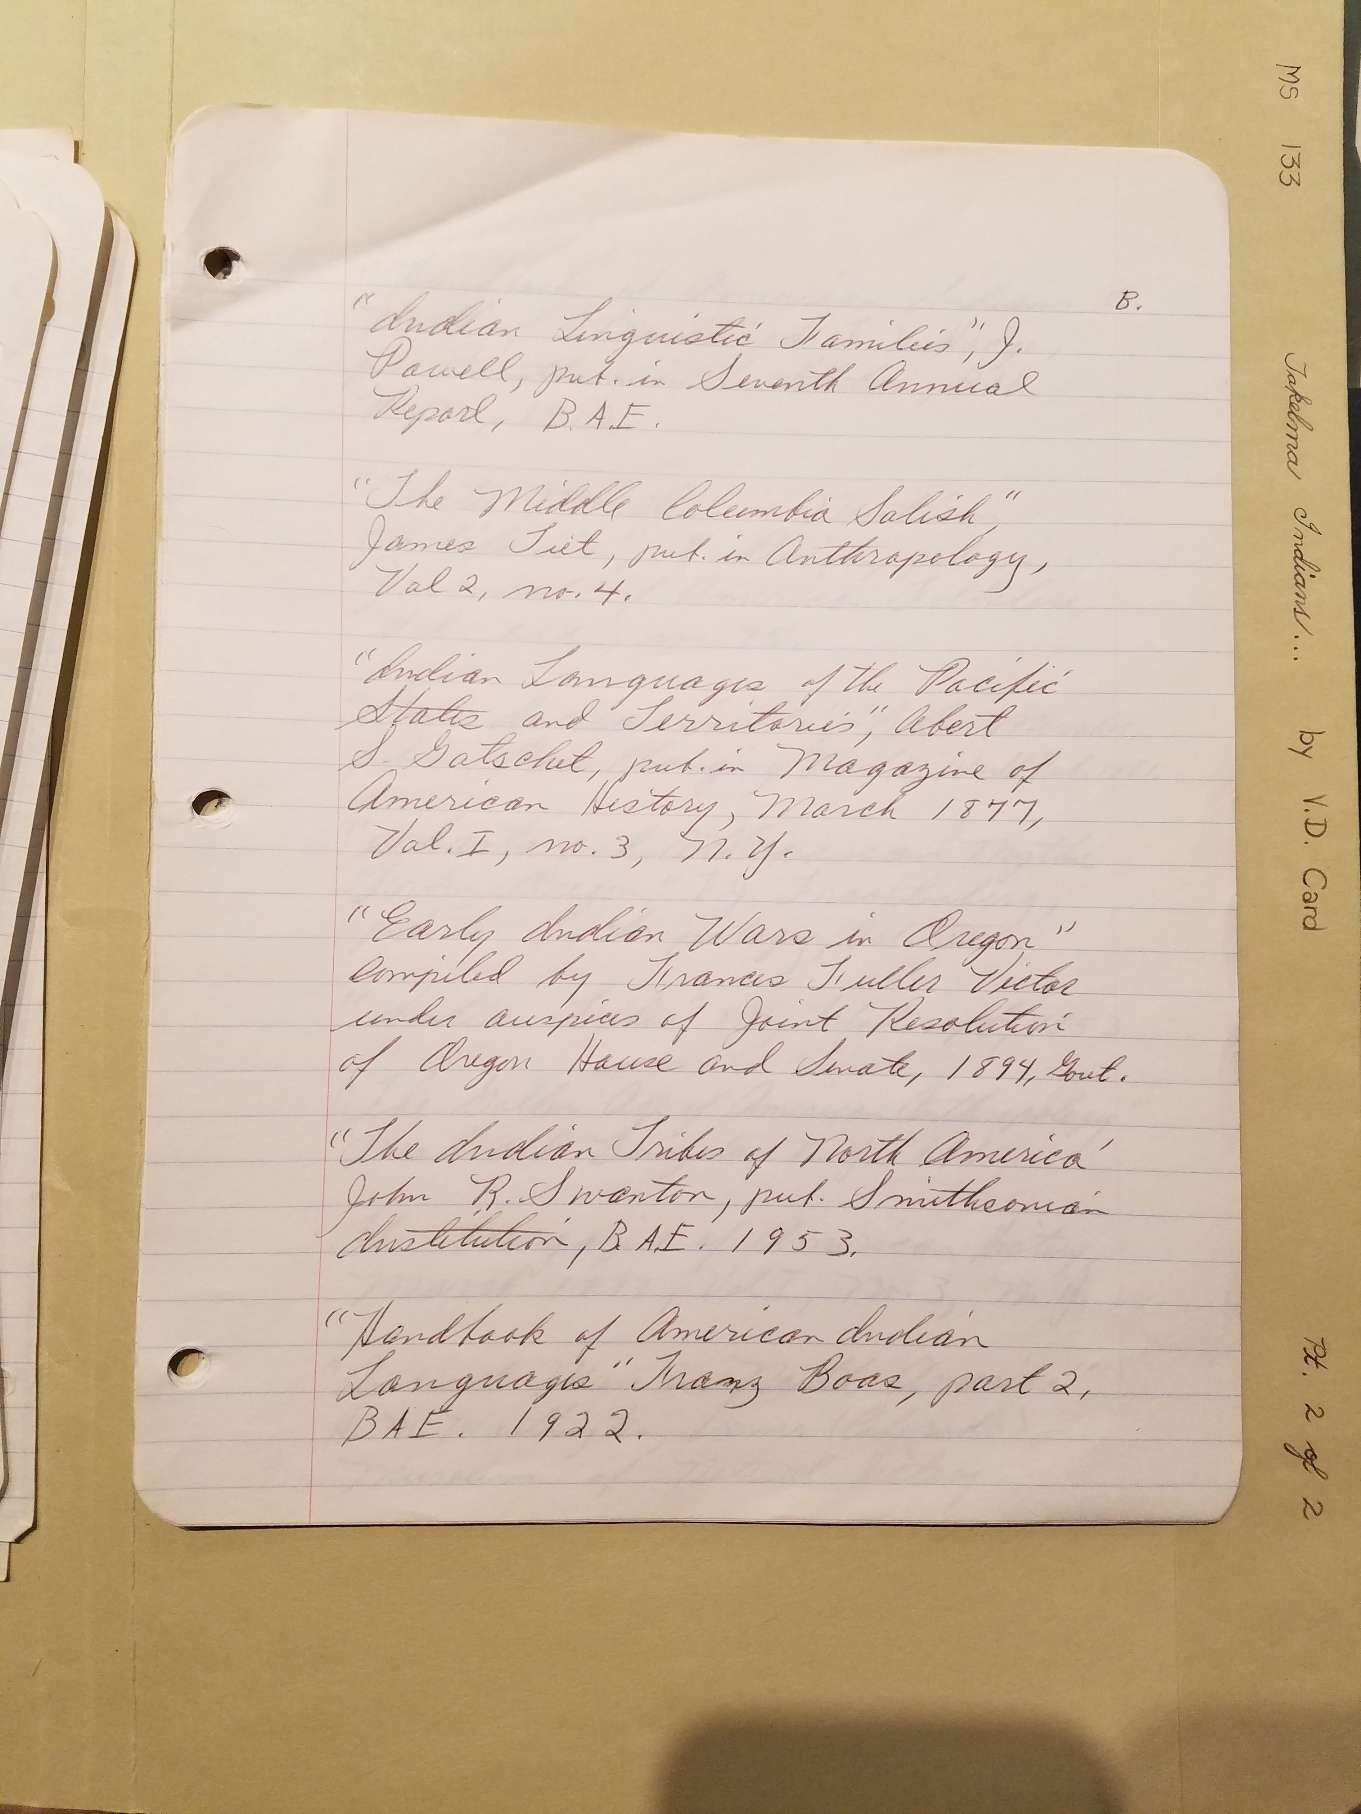 B.
"Indian Linguistic Families", J.
Powell, pub. in Seventh Annual
Report, B.A.E.
"The Middle Columbia Salish",
James Tiet, pub. in Anthropology,
Vol 2, no. 4.
"Indian Languages of the Pacific
States and Territories", Abert
S. Gatschet, pub. in Magazine of
American History, March 1877,
Vol. I, no. 3, N.Y.
"Early Indian Wars in Oregon"
compiled by Frances Fuller Victor
under auspices of Joint Resolution
of Oregon House and Senate, 1894, Govt.
"The Indian Tribes of North America'
John R. Swanton, pub. Smithsonian
Institution, B.A.E. 1953.
"Handbook of American Indian
Languages" Franz Boas, part 2,
BAE. 1922.
MS 133 Takelma Indians... by V.D. Card Pt. 2 of 2